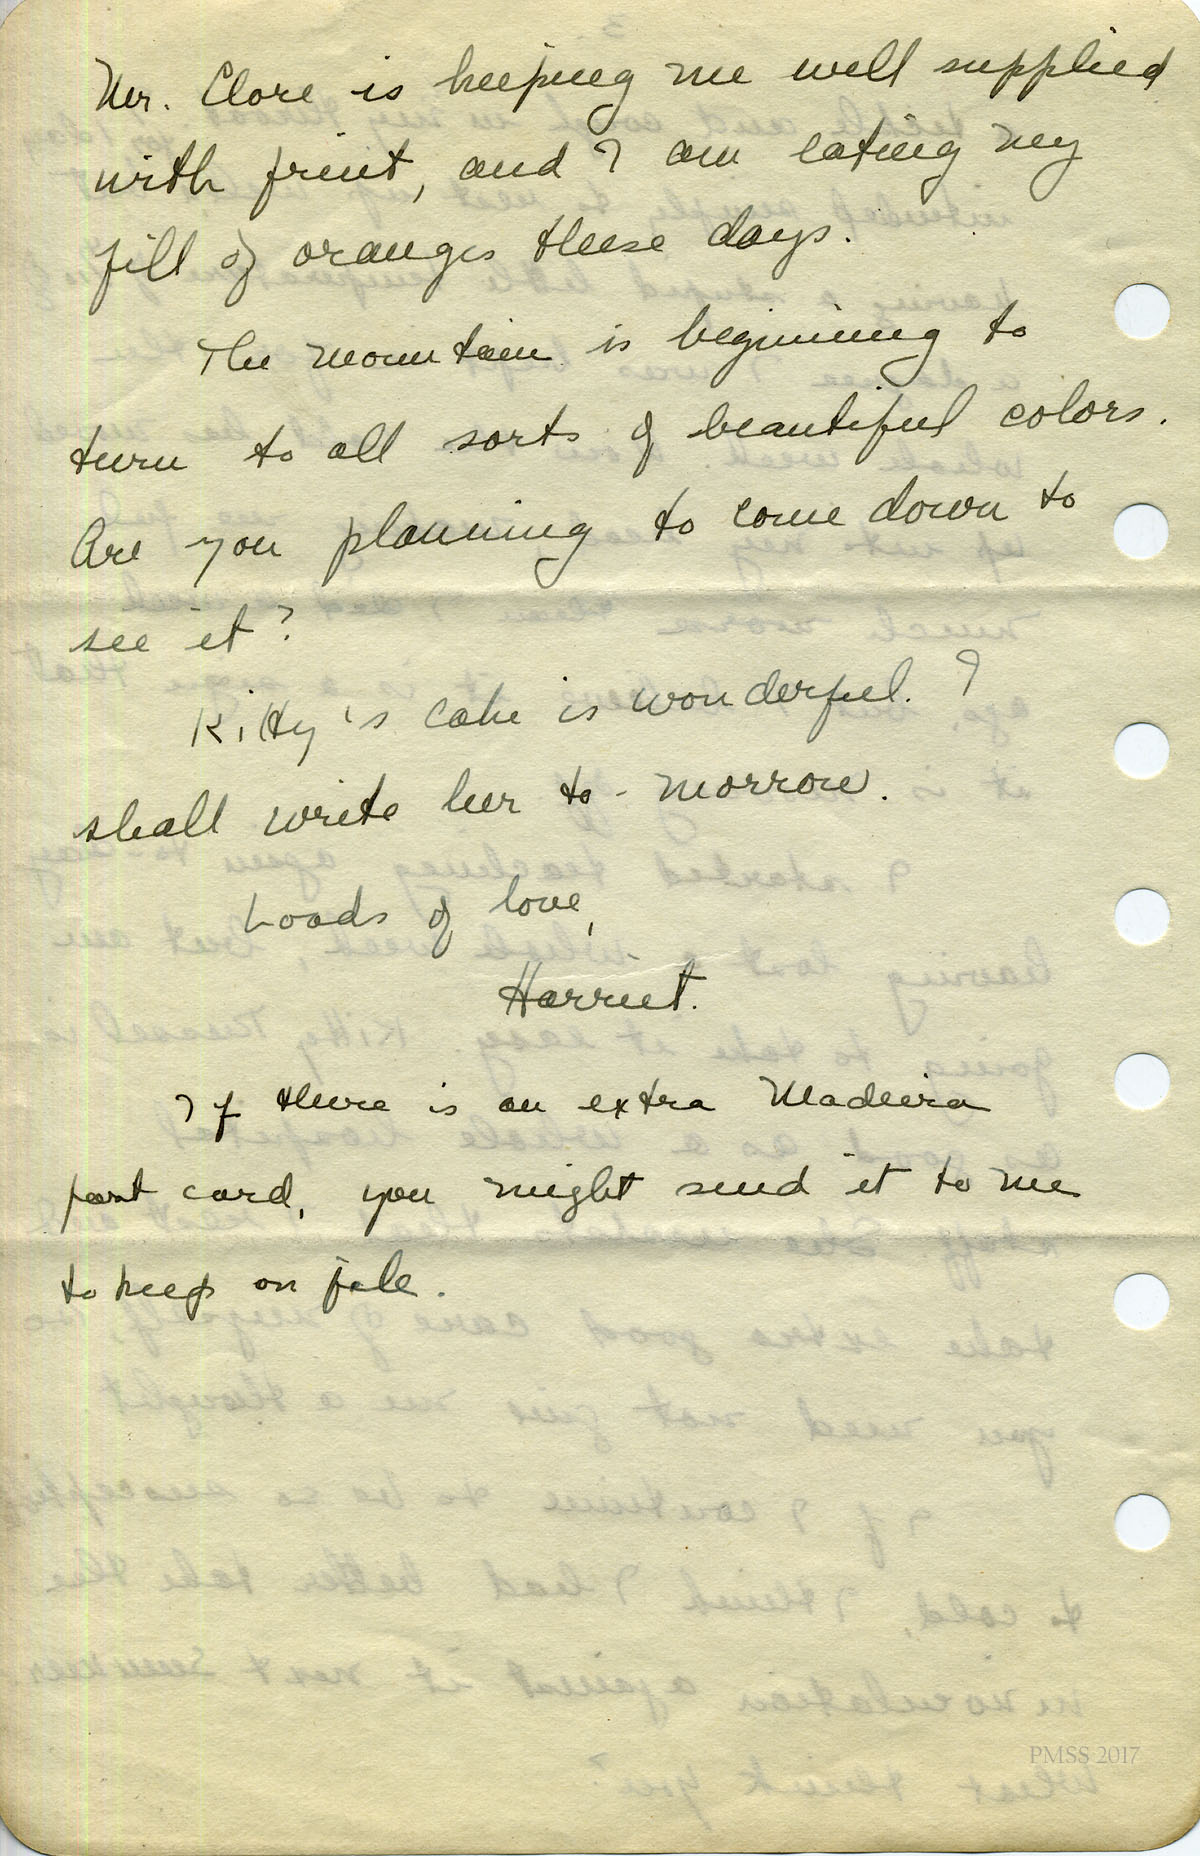 Mr. Clore is keeping me well supplied
with fruit, and I am eating my
fill of oranges these days.
The mountain is beginning to
turn to all sorts of beautiful colors.
Are you planning to come down to
see it?
Kitty's cake is wonderful. I
shall write her to-morrow.
Loads of love,
Harriet.
If there is an extra Madeira
post card, you might send it to me
to keep on file.
PMSS 2017